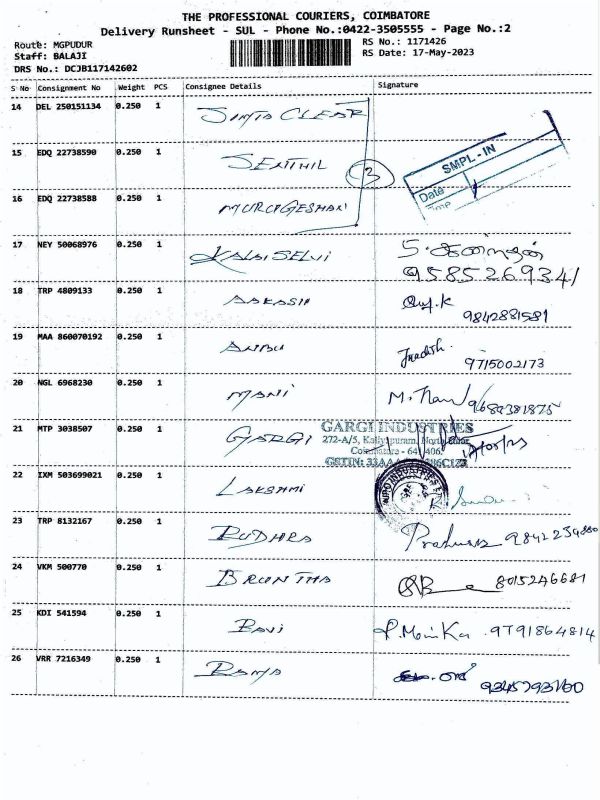 THE PROFESSIONAL COURIERS, COIMBATORE
Delivery Runsheet - SUL - Phone No.:0422-3505555 - Page No.:2
Route: MGPUDUR
Staff: BALAJI
DRS No.: DCJB117142602
RS No.: 1171426
RS Date: 17-May-2023
S No Consignment No Weight PCS Consignee Details Signature
14 DEL 250151134 0.250 1
15 EDQ 22738590 0.250 1 SENTHIL 3
SMPL - IN
Date
16 EDQ 22738588 0.250 1 MURUGESHAN
17 NEY 50068976 0.250 1 KALAISELVI
9585269341
18 TRP 4809133 0.250 1 AAKASH
9842881581
19 MAA 860070192 0.250 1 ANBU
9715002173
20 NGL 6968230 0.250 1 MANI
21 MTP 3038507 0.250 1 GARGI
GARGI INDUSTRIES
22 IXM 503699021 0.250 1 LAKSHMI
23 TRP 8132167 0.250 1 RUDHRA
24 VKM 500770 0.250 1 BRUNTHA 8015246681
25 KDI 541594 0.250 1 RAVI P.Monika 9791864814
26 VRR 7216349 0.250 1 RAMYA